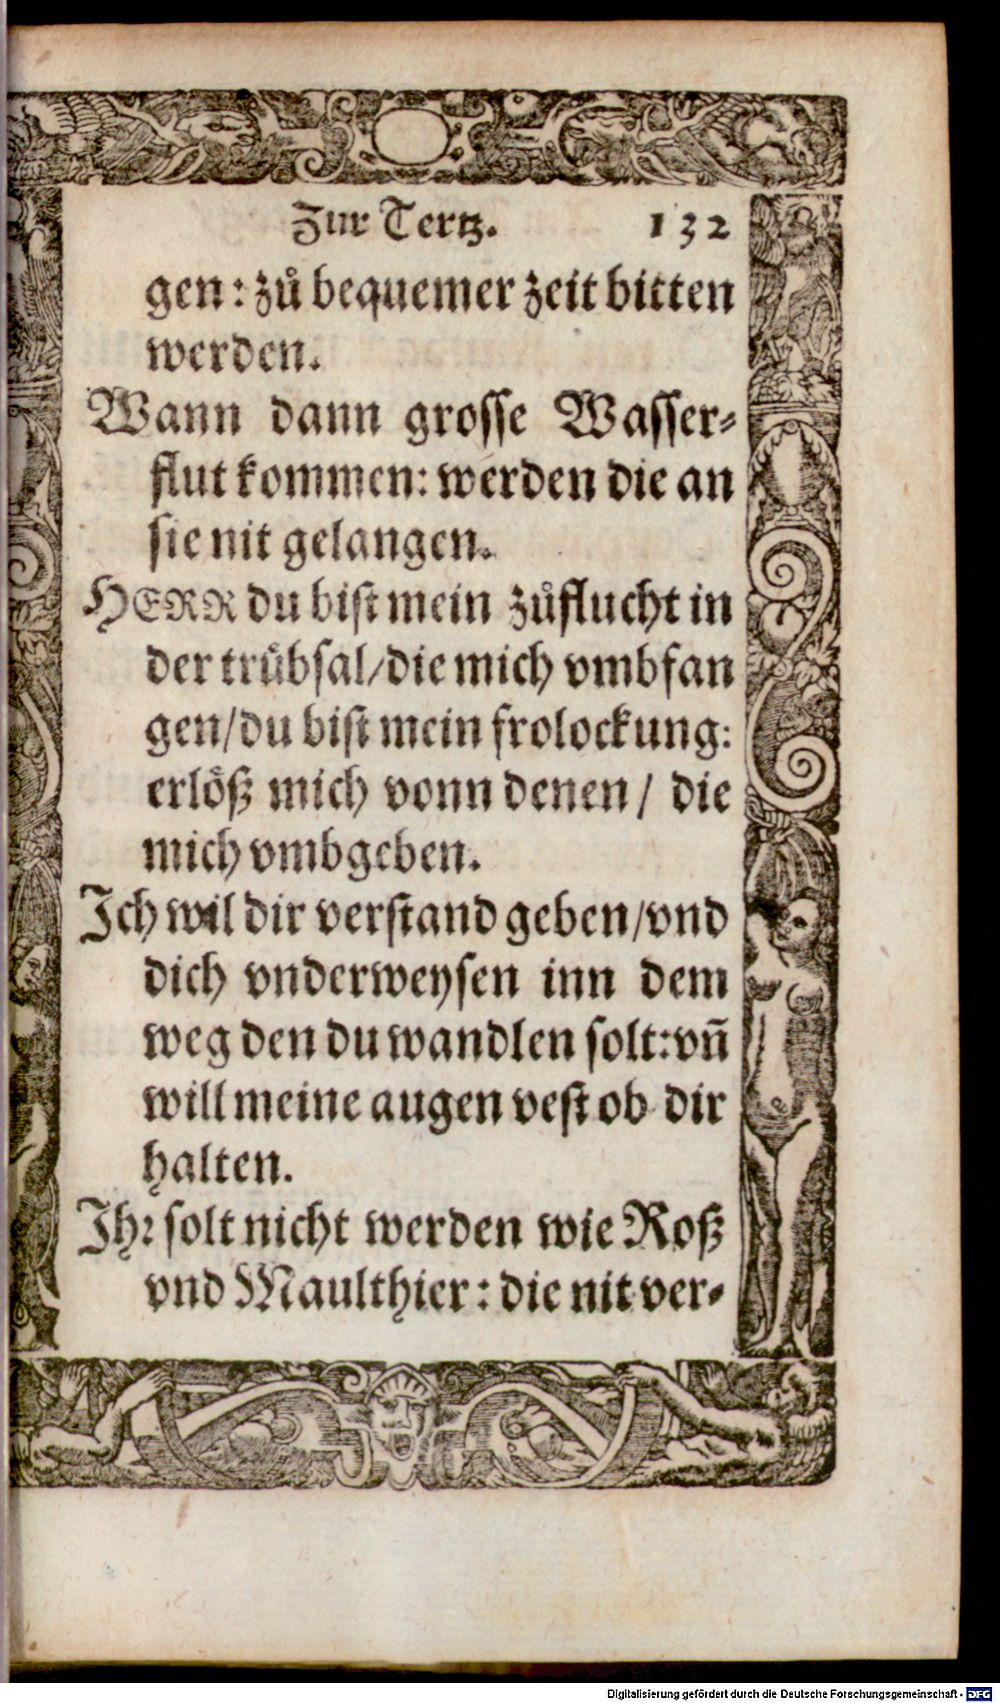 Zur Tertz. 132
gen: zů bequemer zeit bitten
werden.
Wann dann grosse Wasser-
flut kommen: werden die an
sie nit gelangen.
HERR du bist mein zůflucht in
der trůbsal/die mich vmbfan
gen/du bist mein frolockung:
erlöß mich vonn denen/ die
mich vmbgeben.
Ich wil dir verstand geben/vnd
dich vnderweysen inn dem
weg den du wandlen solt:vñ
will meine augen vest ob dir
halten.
Ihr solt nicht werden wie Roß
vnd Maulthier: die nit ver-
Digitalisierung gefördert durch die Deutsche Forschungsgemeinschaft - DFG